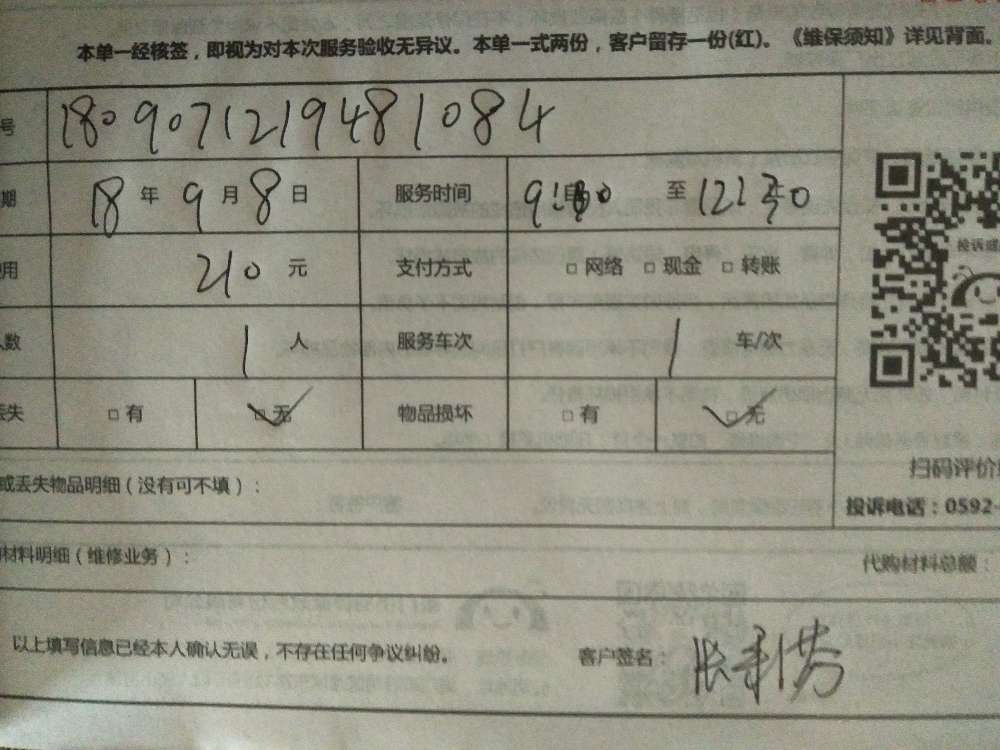 本单一经核签，即视为对本次服务验收无异议。本单一式两份，客户留存一份(红)。《维保须知》详见背面。
号 180907121948 1084
期 18年9月8日 服务时间 9:30 至 12:30
用 210元 支付方式 □网络 □现金 □转账
人数 1人 服务车次 1车/次
丢失 □有 □无 物品损坏 □有 □无
扫码评价
或丢失物品明细（没有可不填）：
投诉电话：0592-
材料明细（维修业务）：
代购材料总额：
以上填写信息已经本人确认无误，不存在任何争议纠纷。
客户签名：